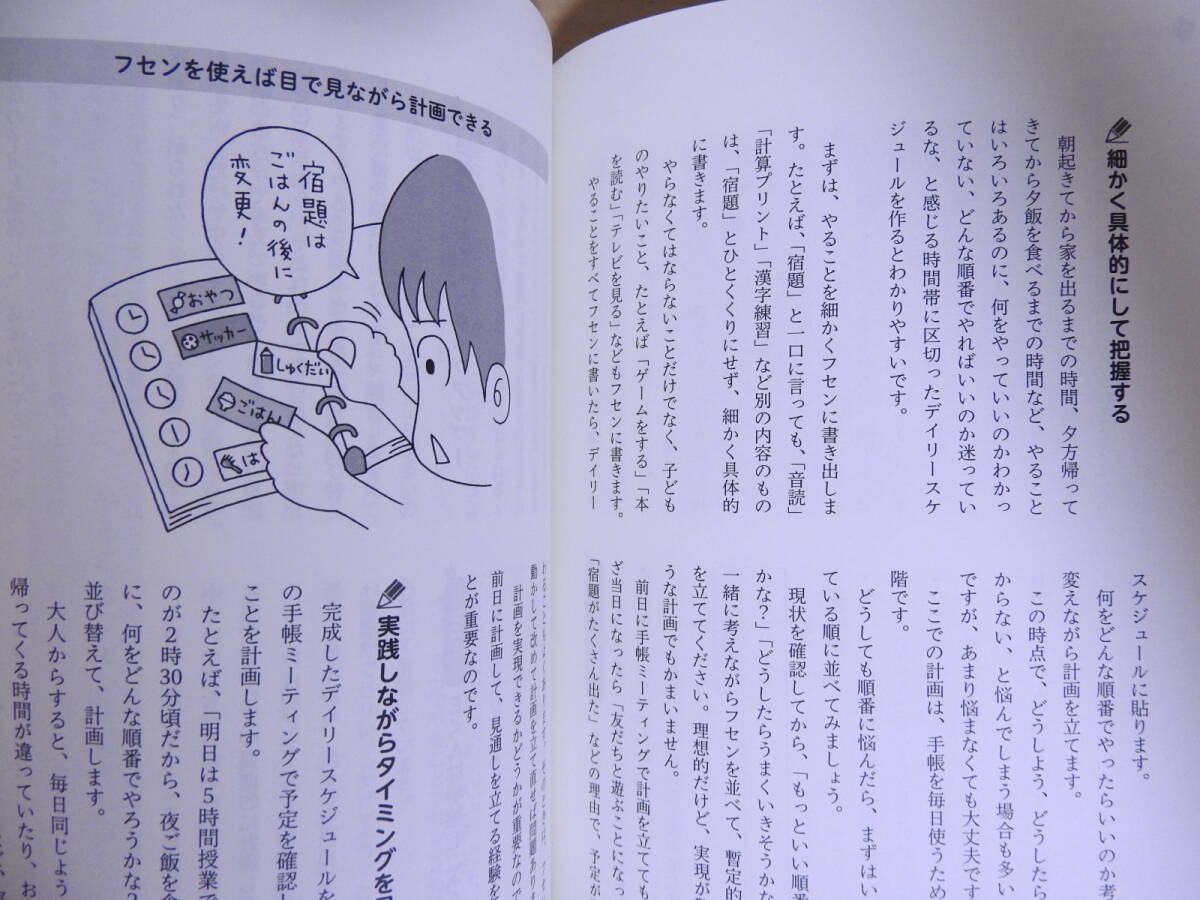 細かく具体的にして把握する
朝起きてから家を出るまでの時間、夕方帰って
きてから夕飯を食べるまでの時間など、やること
はいろいろあるのに、何をやっていいのかわかっ
ていない、どんな順番でやればいいのか迷ってい
るな、と感じる時間帯に区切ったデイリースケ
ジュールを作るとわかりやすいです。
まずは、やることを細かくフセンに書き出しま
す。たとえば、「宿題」と一口に言っても、「音読」
「計算プリント」「漢字練習」など別の内容のもの
は、「宿題」とひとくくりにせず、細かく具体的
に書きます。
やらなくてはならないことだけでなく、子ども
のやりたいこと、たとえば「ゲームをする」「本
を読む」「テレビを見る」などもフセンに書きます。
やることをすべてフセンに書いたら、デイリー
スケジュールに貼ります。
何をどんな順番でやったらいいのか考
変えながら計画を立てます。
この時点で、どうしよう、どうしたら
からない、と悩んでしまう場合も多い
ですが、あまり悩まなくても大丈夫です
ここでの計画は、手帳を毎日使うため
階です。
どうしても順番に悩んだら、まずはい
ている順に並べてみましょう。
現状を確認してから、「もっといい順番
かな?」「どうしたらうまくいきそうかな
一緒に考えながらフセンを並べて、暫定的
を立ててください。理想的だけど、実現が
うな計画でもかまいません。
前日に手帳ミーティングで計画を立てても
ざ当日になったら「友だちと遊ぶことになっ
「宿題がたくさん出た」などの理由で、予定が
フセンを使えば目で見ながら計画できる
宿題は
ごはんの後に
変更!
おやつ
サッカー
しゅくだい
ごはん
は
動かして改めて計画を立て直せば問題あり
計画を実現できるかどうかが重要なので
前日に計画して、見通しを立てる経験を
とが重要なのです。
実践しながらタイミングを
完成したデイリースケジュールを
の手帳ミーティングで予定を確認し
ことを計画します。
たとえば、「明日は5時間授業で
のが2時30分頃だから、夜ご飯を食
に、何をどんな順番でやろうかな?
並び替えて、計画します。
大人からすると、毎日同じよう
帰ってくる時間が違っていたり、お